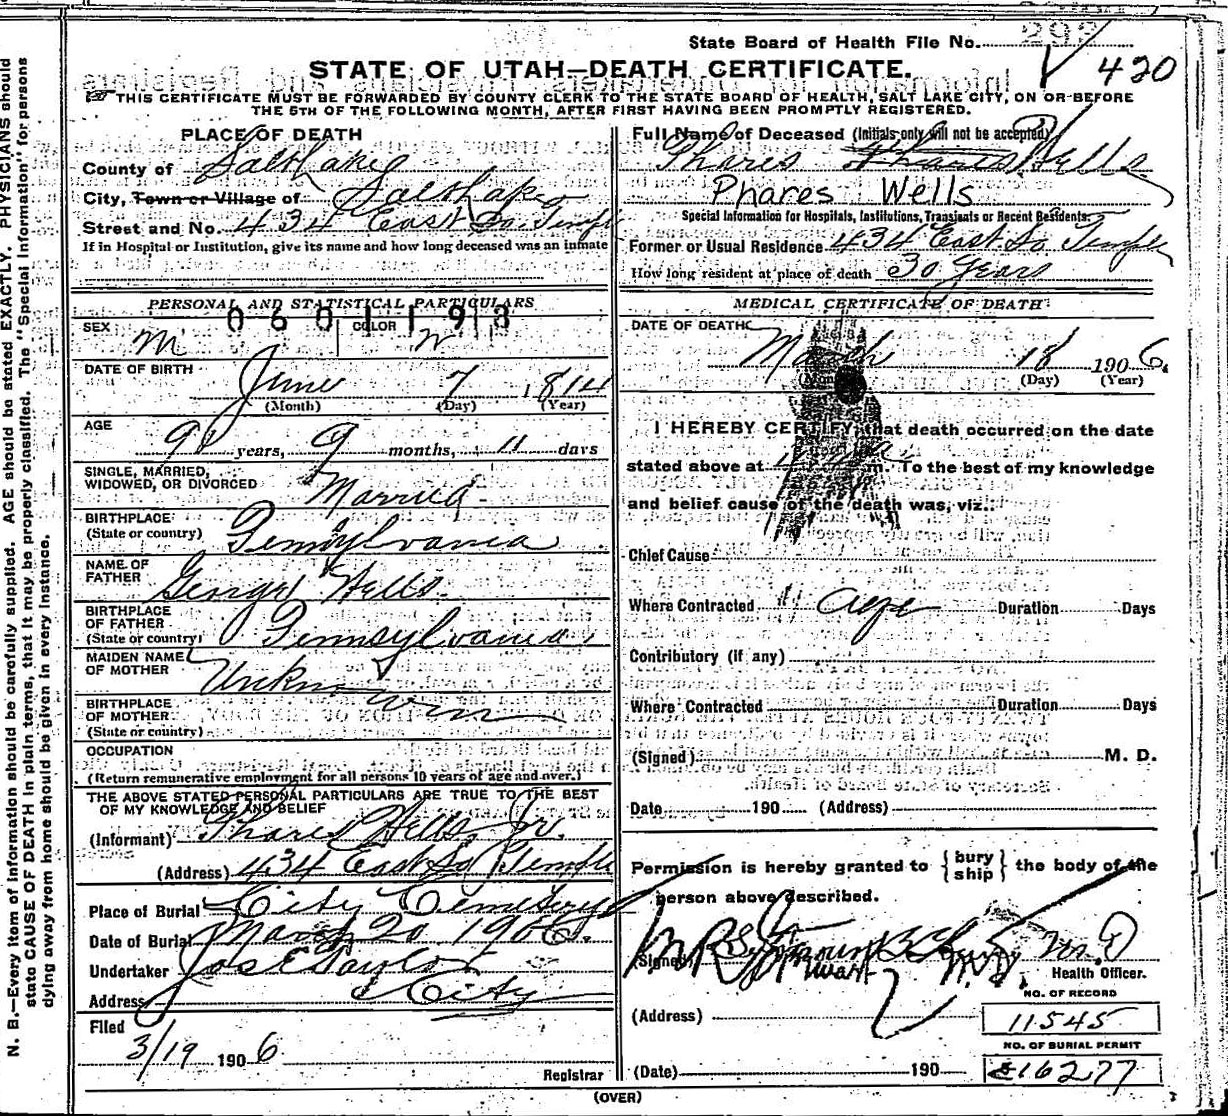 State Board of Health File No. 292
420
STATE OF UTAH—DEATH CERTIFICATE.
THIS CERTIFICATE MUST BE FORWARDED BY COUNTY CLERK TO THE STATE BOARD OF HEALTH, SALT LAKE CITY, ON OR BEFORE
THE 5TH OF THE FOLLOWING MONTH, AFTER FIRST HAVING BEEN PROMPTLY REGISTERED.
PLACE OF DEATH
County of Salt Lake
City, Town or Village of Salt Lake
Street and No. 434 East So. Temple
If in Hospital or Institution, give its name and how long deceased was an inmate
Full Name of Deceased (Initials only will not be accepted)
Phares Wells
Phares Wells
Special Information for Hospitals, Institutions, Transients or Recent Residents.
Former or Usual Residence 434 East So Temple
How long resident at place of death 30 Years
PERSONAL AND STATISTICAL PARTICULARS
0601193
SEX M COLOR W
DATE OF BIRTH June 7 1814
(Month) (Day) (Year)
AGE 91 years, 9 months, 11 days
SINGLE, MARRIED,
WIDOWED, OR DIVORCED Married
BIRTHPLACE
(State or country) Pennsylvania
NAME OF
FATHER George Wells
BIRTHPLACE
OF FATHER
(State or country) Pennsylvania
MAIDEN NAME
OF MOTHER Unknown
BIRTHPLACE
OF MOTHER
(State or country)
OCCUPATION
(Return remunerative employment for all persons 10 years of age and over.)
THE ABOVE STATED PERSONAL PARTICULARS ARE TRUE TO THE BEST
OF MY KNOWLEDGE AND BELIEF
(Informant) Phares Wells Jr.
(Address) 434 East So Temple
Place of Burial City Cemetery
Date of Burial March 20 1906.
Undertaker Jos E Taylor
Address City
Filed
3/19 1906
Registrar
MEDICAL CERTIFICATE OF DEATH
DATE OF DEATH
March 18 1906.
(Month) (Day) (Year)
I HEREBY CERTIFY, that death occurred on the date
stated above at 4 a m. To the best of my knowledge
and belief cause of the death was, viz.:
Chief Cause
Where Contracted Age Duration Days
Contributory (if any)
Where Contracted Duration Days
(Signed) M. D.
Date 190 (Address)
Permission is hereby granted to {bury
ship} the body of the
person above described.
Signed M.D.
Health Officer.
(Address)
NO. OF RECORD
11545
NO. OF BURIAL PERMIT
(Date) 190 16277
(OVER)
N. B.—Every item of information should be carefully supplied. AGE should be stated EXACTLY. PHYSICIANS should
state CAUSE OF DEATH in plain terms, that it may be properly classified. The "Special Information" for persons
dying away from home should be given in every instance.